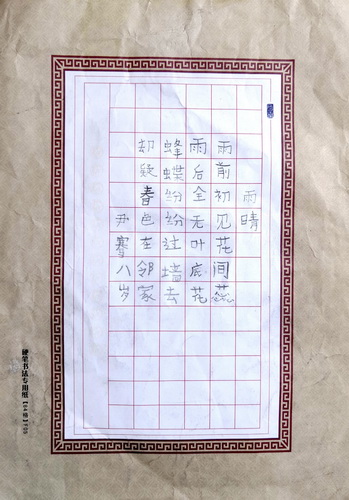 雨晴
雨前初见花间蕊
雨后全无叶底花
蜂蝶纷纷过墙去
却疑春色在邻家
尹 八岁
硬笔书法专用纸